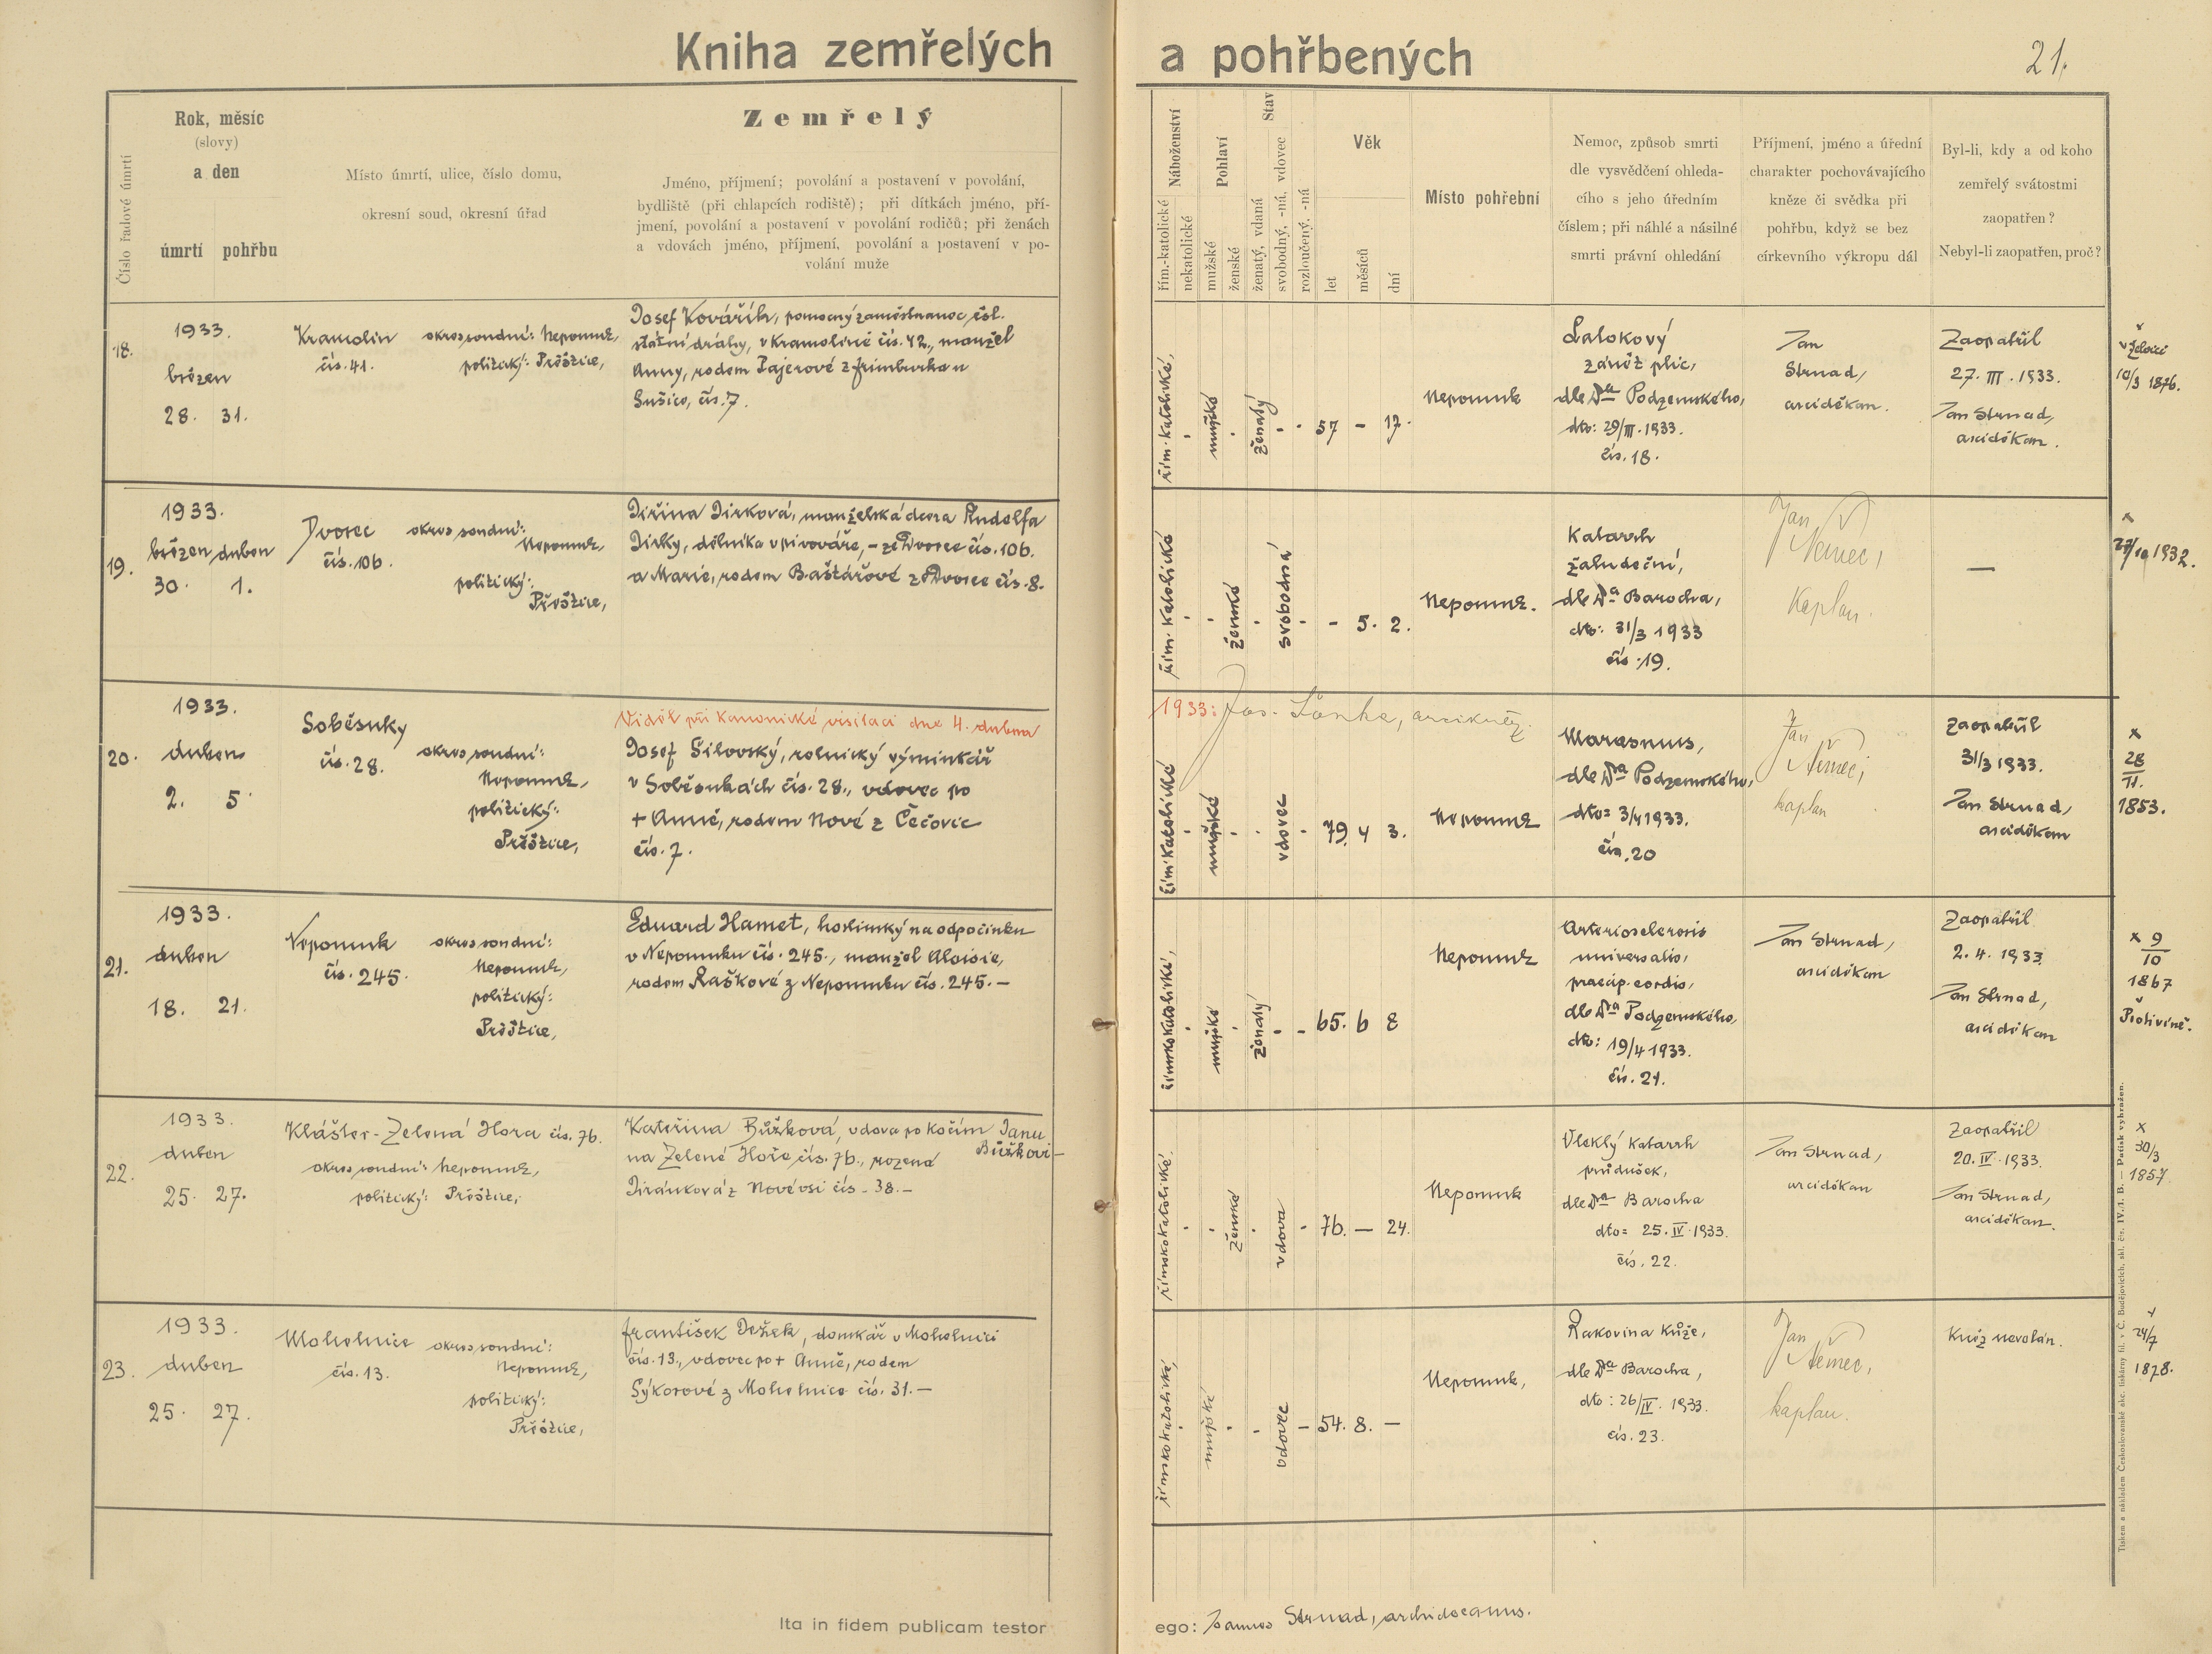 Kniha zemřelých a pohřbených
21.
Číslo řadové úmrtí
Rok, měsíc
(slovy)
a den
úmrtí pohřbu
Místo úmrtí, ulice, číslo domu,
okresní soud, okresní úřad
Zemřelý
Jméno, příjmení; povolání a postavení v povolání,
bydliště (při chlapcích rodiště); při dítkách jméno, pří-
jmení, povolání a postavení v povolání rodičů; při ženách
a vdovách jméno, příjmení, povolání a postavení v po-
volání muže
Náboženství
řím.-katolické
nekatolické
Pohlaví
mužské
ženské
Stav
ženatý, vdaná
svobodný, -ná, vdovec
rozloučený, -ná
Věk
let
měsíců
dní
Místo pohřební
Nemoc, způsob smrti
dle vysvědčení ohleda-
cího s jeho úředním
číslem; při náhlé a násilné
smrti právní ohledání
Příjmení, jméno a úřední
charakter pochovávajícího
kněze či svědka při
pohřbu, když se bez
církevního výkropu dál
Byl-li, kdy a od koho
zemřelý svátostmi
zaopatřen?
Nebyl-li zaopatřen, proč?
18.
1933.
březen
28. 31.
Kramolín
čís. 41.
okres soudní: Nepomuk,
politický: Přeštice,
Josef Kovářík, pomocný zaměstnanec čsl.
státní dráhy, v Kramolíně čís. 42., manžel
Anny, rodem Pajerové z Frimburka u
Sušice, čís. 7.
řím. katolické,
mužské
ženatý
57 - 17.
Nepomuk
Lalokový
zánět plic,
dle Dra Podzemského,
dto: 29/III. 1933.
čís. 18.
Jan
Strnad,
arciděkan.
Zaopatřil
27. III. 1933.
Jan Strnad,
arciděkan.
10/3 1876.
19.
1933.
březen duben
30. 1.
Dvorec
čís. 106.
okres soudní:
Nepomuk,
politický:
Přeštice,
Jiřina Jirková, manželská dcera Rudolfa
Jirky, dělníka v pivováře, - ze Dvorce čís. 106.
a Marie, rodem Baštářové z Dvorce čís. 8.
řím. katolické
ženské
svobodná
- 5. 2.
Nepomuk.
Katarrh
žaludeční,
dle Dra Barocha,
dto: 31/3 1933
čís. 19.
Jan
Němec,
Kaplan.
—
1932.
20.
1933.
duben
2. 5
Soběsuky
čís. 28.
okres soudní:
Nepomuk,
politický:
Přeštice,
Viděl při kanonické visitaci dne 4. dubna
1933: Jos. Loňka, arcikněz.
Josef Šilovský, rolnický výminkář
v Soběsukách čís. 28., vdovec po
+ Anně, rodem Nové z Čečovic
čís. 7.
řím katolické
mužské
vdovec
79. 4 3.
Nepomuk
Marasmus,
dle Dra Podzemského,
dto: 3/4 1933.
čís. 20
Jan
Němec,
kaplan
Zaopatřil
31/3 1933.
Jan Strnad,
arciděkan
x
28
11.
1853.
21.
1933.
duben
18. 21.
Nepomuk
čís. 245.
okres soudní:
Nepomuk,
politický:
Přeštice,
Eduard Hamet, hostinský na odpočinku
v Nepomuku čís. 245., manžel Aloisie,
rodem Raškové z Nepomuku čís. 245. —
římskokatolické,
mužské
ženatý
65. 6 8
Nepomuk
Arteriosclerosis
universalis,
praecip. cordis,
dle Dra Podzemského,
dto: 19/4 1933.
čís. 21.
Jan Strnad,
arciděkan
Zaopatřil
2. 4. 1933.
Jan Strnad,
arciděkan
x 9
10
1867
Protivíně.
22.
1933.
duben
25. 27.
Klášter-Zelená Hora čís. 76.
okres soudní: Nepomuk,
politický: Přeštice,
Kateřina Bůžková, vdova po kočím Janu
Bůžkovi —
na Zelené Hoře čís. 76., rozená
Jiránková z Nové vsi čís. 38. —
římskokatolické,
ženské
vdova
76. — 24.
Nepomuk
Vleklý katarrh
průdušek,
dle Dra Barocha
dto: 25. IV. 1933.
čís. 22.
Jan Strnad,
arciděkan
Zaopatřil
20. IV. 1933.
Jan Strnad,
arciděkan.
x
30/3
1857.
23.
1933.
duben
25. 27.
Mohelnice
čís. 13.
okres soudní:
Nepomuk,
politický:
Přeštice,
František Dežek, domkář v Mohelnici
čís. 13., vdovec po + Anně, rodem
Sýkorové z Mohelnice čís. 31. —
římskokatolické,
mužské
vdovec
54. 8. —
Nepomuk,
Rakovina kůže,
dle Dra Barocha,
dto: 26/IV. 1933.
čís. 23.
Jan
Němec,
kaplan.
Kněz nevolán.
24/7
1878.
Ita in fidem publicam testor ego: Joannes Strnad, archidecanus.
Tiskem a nákladem Československé akc. tiskárny fil. v Č. Budějovicích, skl. čís. IV./1. B. — Patisk vyhražen.